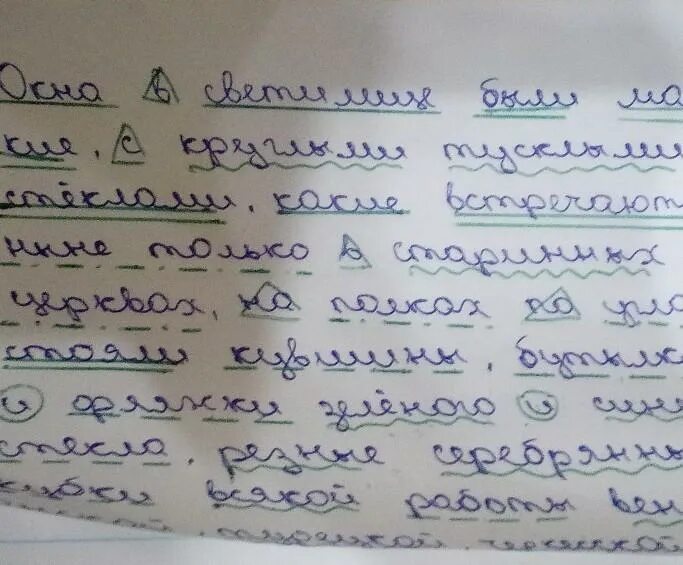 Окна в светимице были ма
кие, с круглыми тусклыми
стёклами, какие встречают
ныне только в старинных
церквах, на полках по угла
стояли кувшины, бутылк
и фляжки зелёного и сине
стекла, резные серебрянны
кубки всякой работы вен
турецкой, черкесской